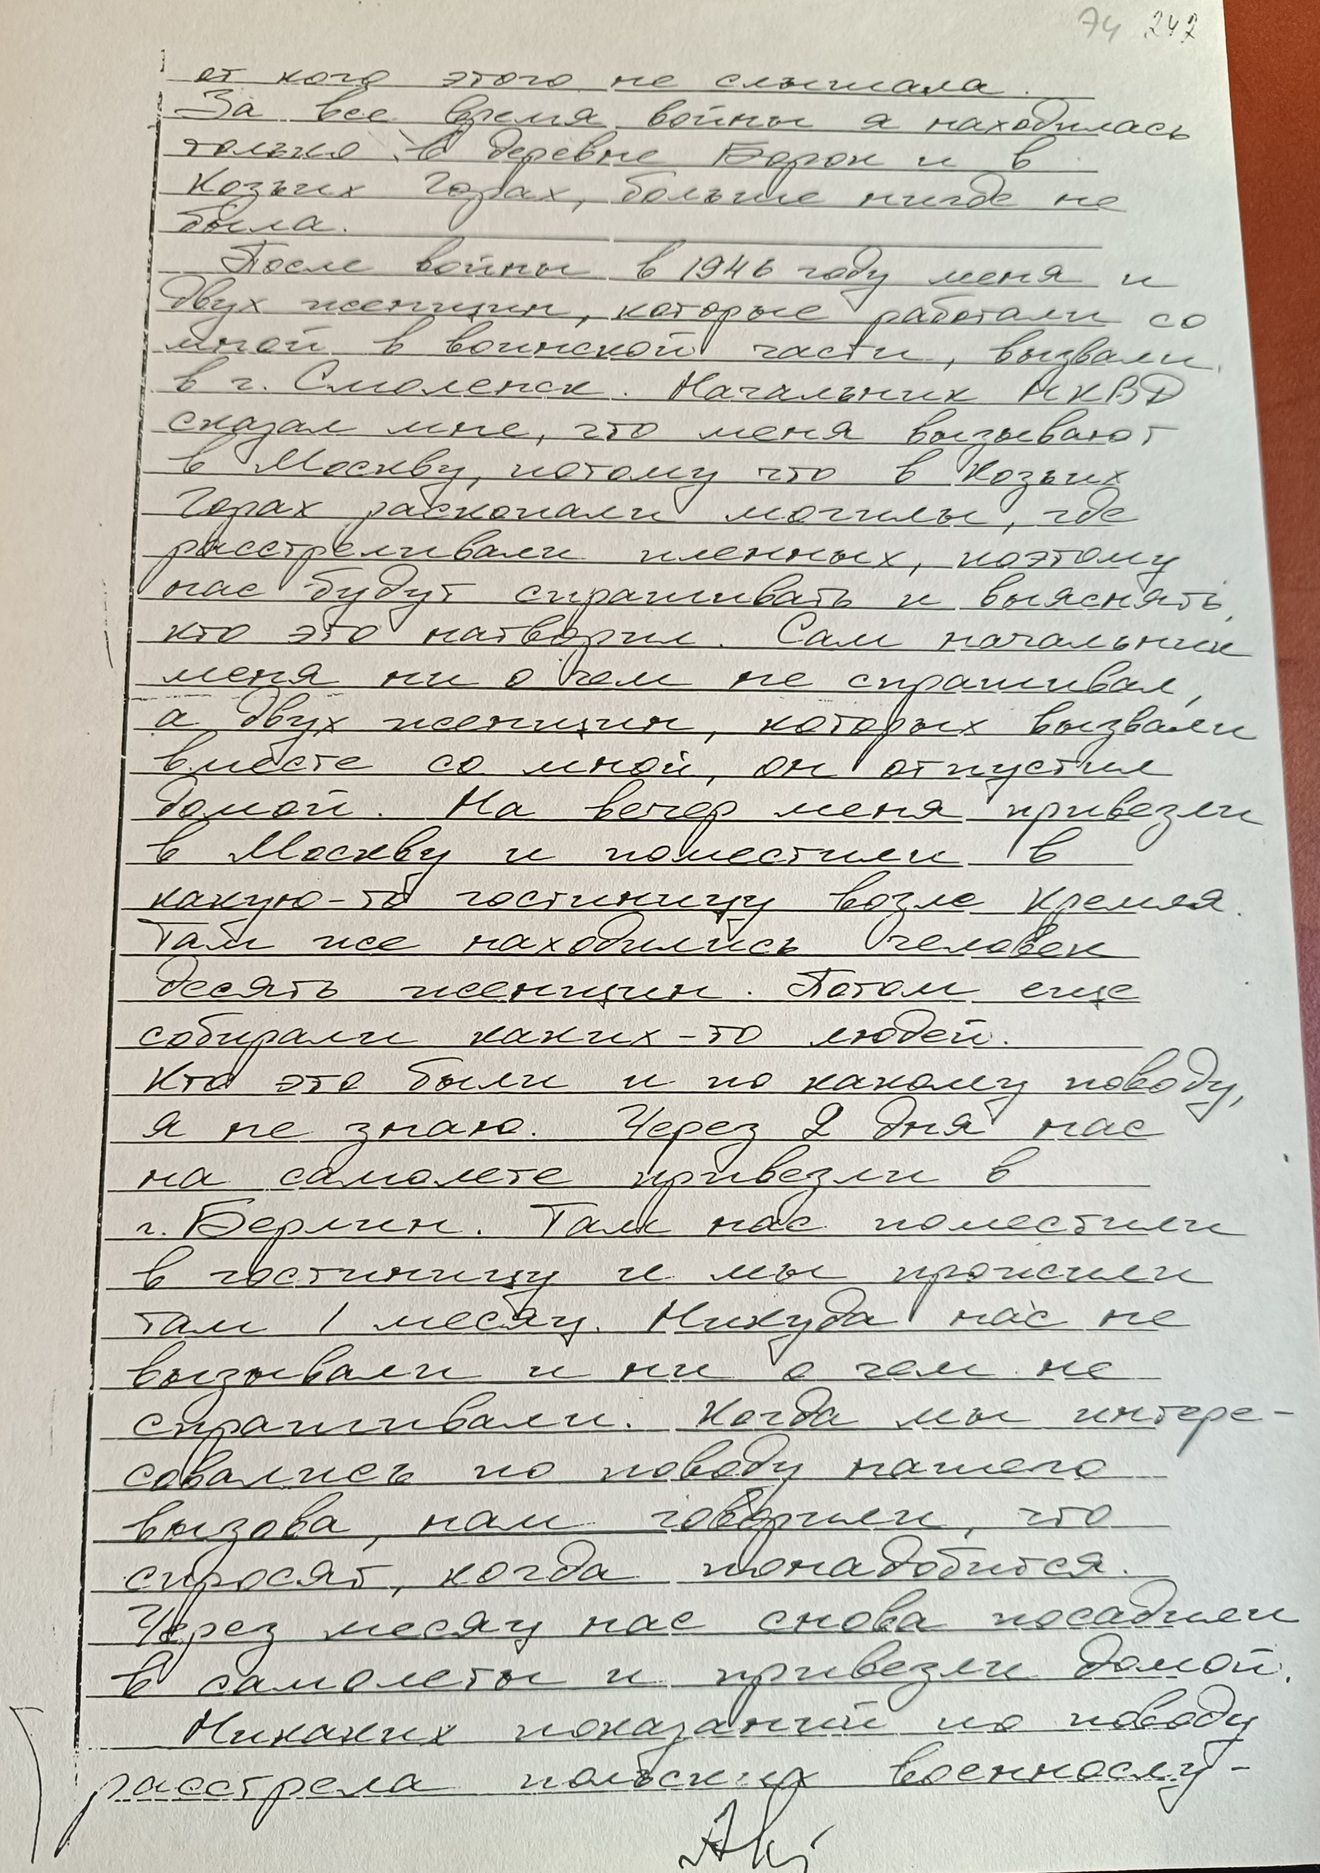 74 242
от кого этого не слышала.
За все время войны я находилась
только в деревне Борок и в
Козьих Горах, больше нигде не
была.
После войны в 1946 году меня и
двух женщин, которые работали со
мной в воинской части, вызвали
в г. Смоленск. Начальник НКВД
сказал мне, что меня вызывают
в Москву, потому что в Козьих
Горах раскопали могилы, где
расстреливали пленных, поэтому
нас будут спрашивать и выяснять,
кто это натворил. Сам начальник
меня ни о чем не спрашивал,
а двух женщин, которых вызвали
вместе со мной, он отпустил
домой. На вечер меня привезли
в Москву и поместили в
какую-то гостиницу возле Кремля.
Там же находились человек
десять женщин. Потом еще
собирали каких-то людей.
Кто это были и по какому поводу,
я не знаю. Через 2 дня нас
на самолете привезли в
г. Берлин. Там нас поместили
в гостиницу и мы прожили
там 1 месяц. Никуда нас не
вызывали и ни о чем не
спрашивали. Когда мы интере-
совались по поводу нашего
вызова, нам говорили, что
спросят, когда понадобится.
Через месяц нас снова посадили
в самолеты и привезли домой.
Никаких показаний по поводу
расстрела польских военнослу-